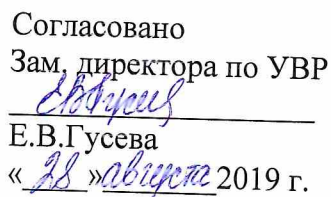 Согласовано
Зам. директора по УВР
Е.В.Гусева
«28»августа 2019 г.